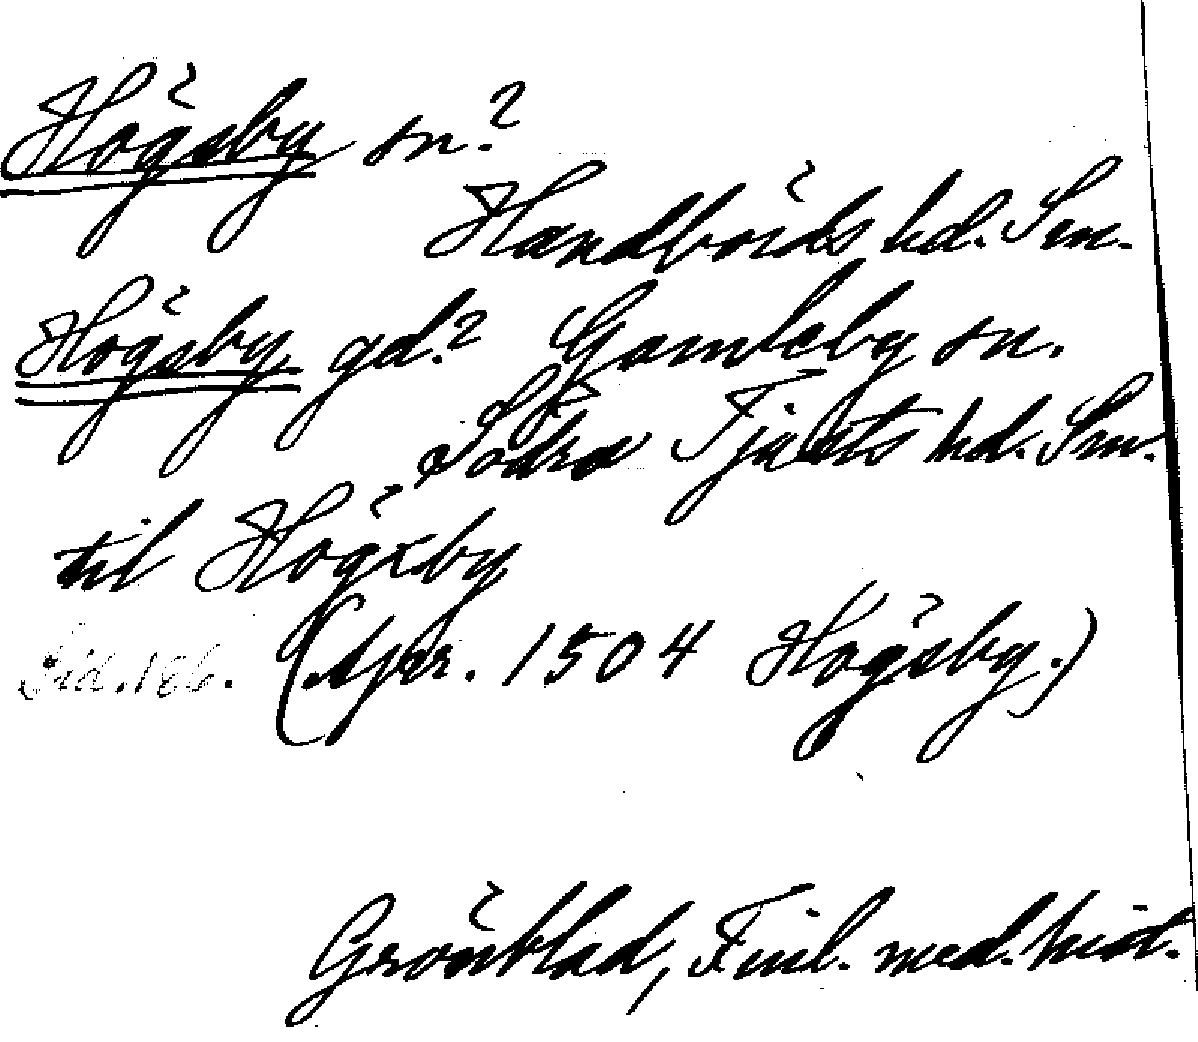 Högsby sn.?
Handbörds hd. Sm.
Högsby gd.? Gamleby sn.
Södra Tjusts hd. Sm.
til Högxby
Sid. 186. (Apr. 1504 Högsby.)
Grönblad, Finl. med. hist.